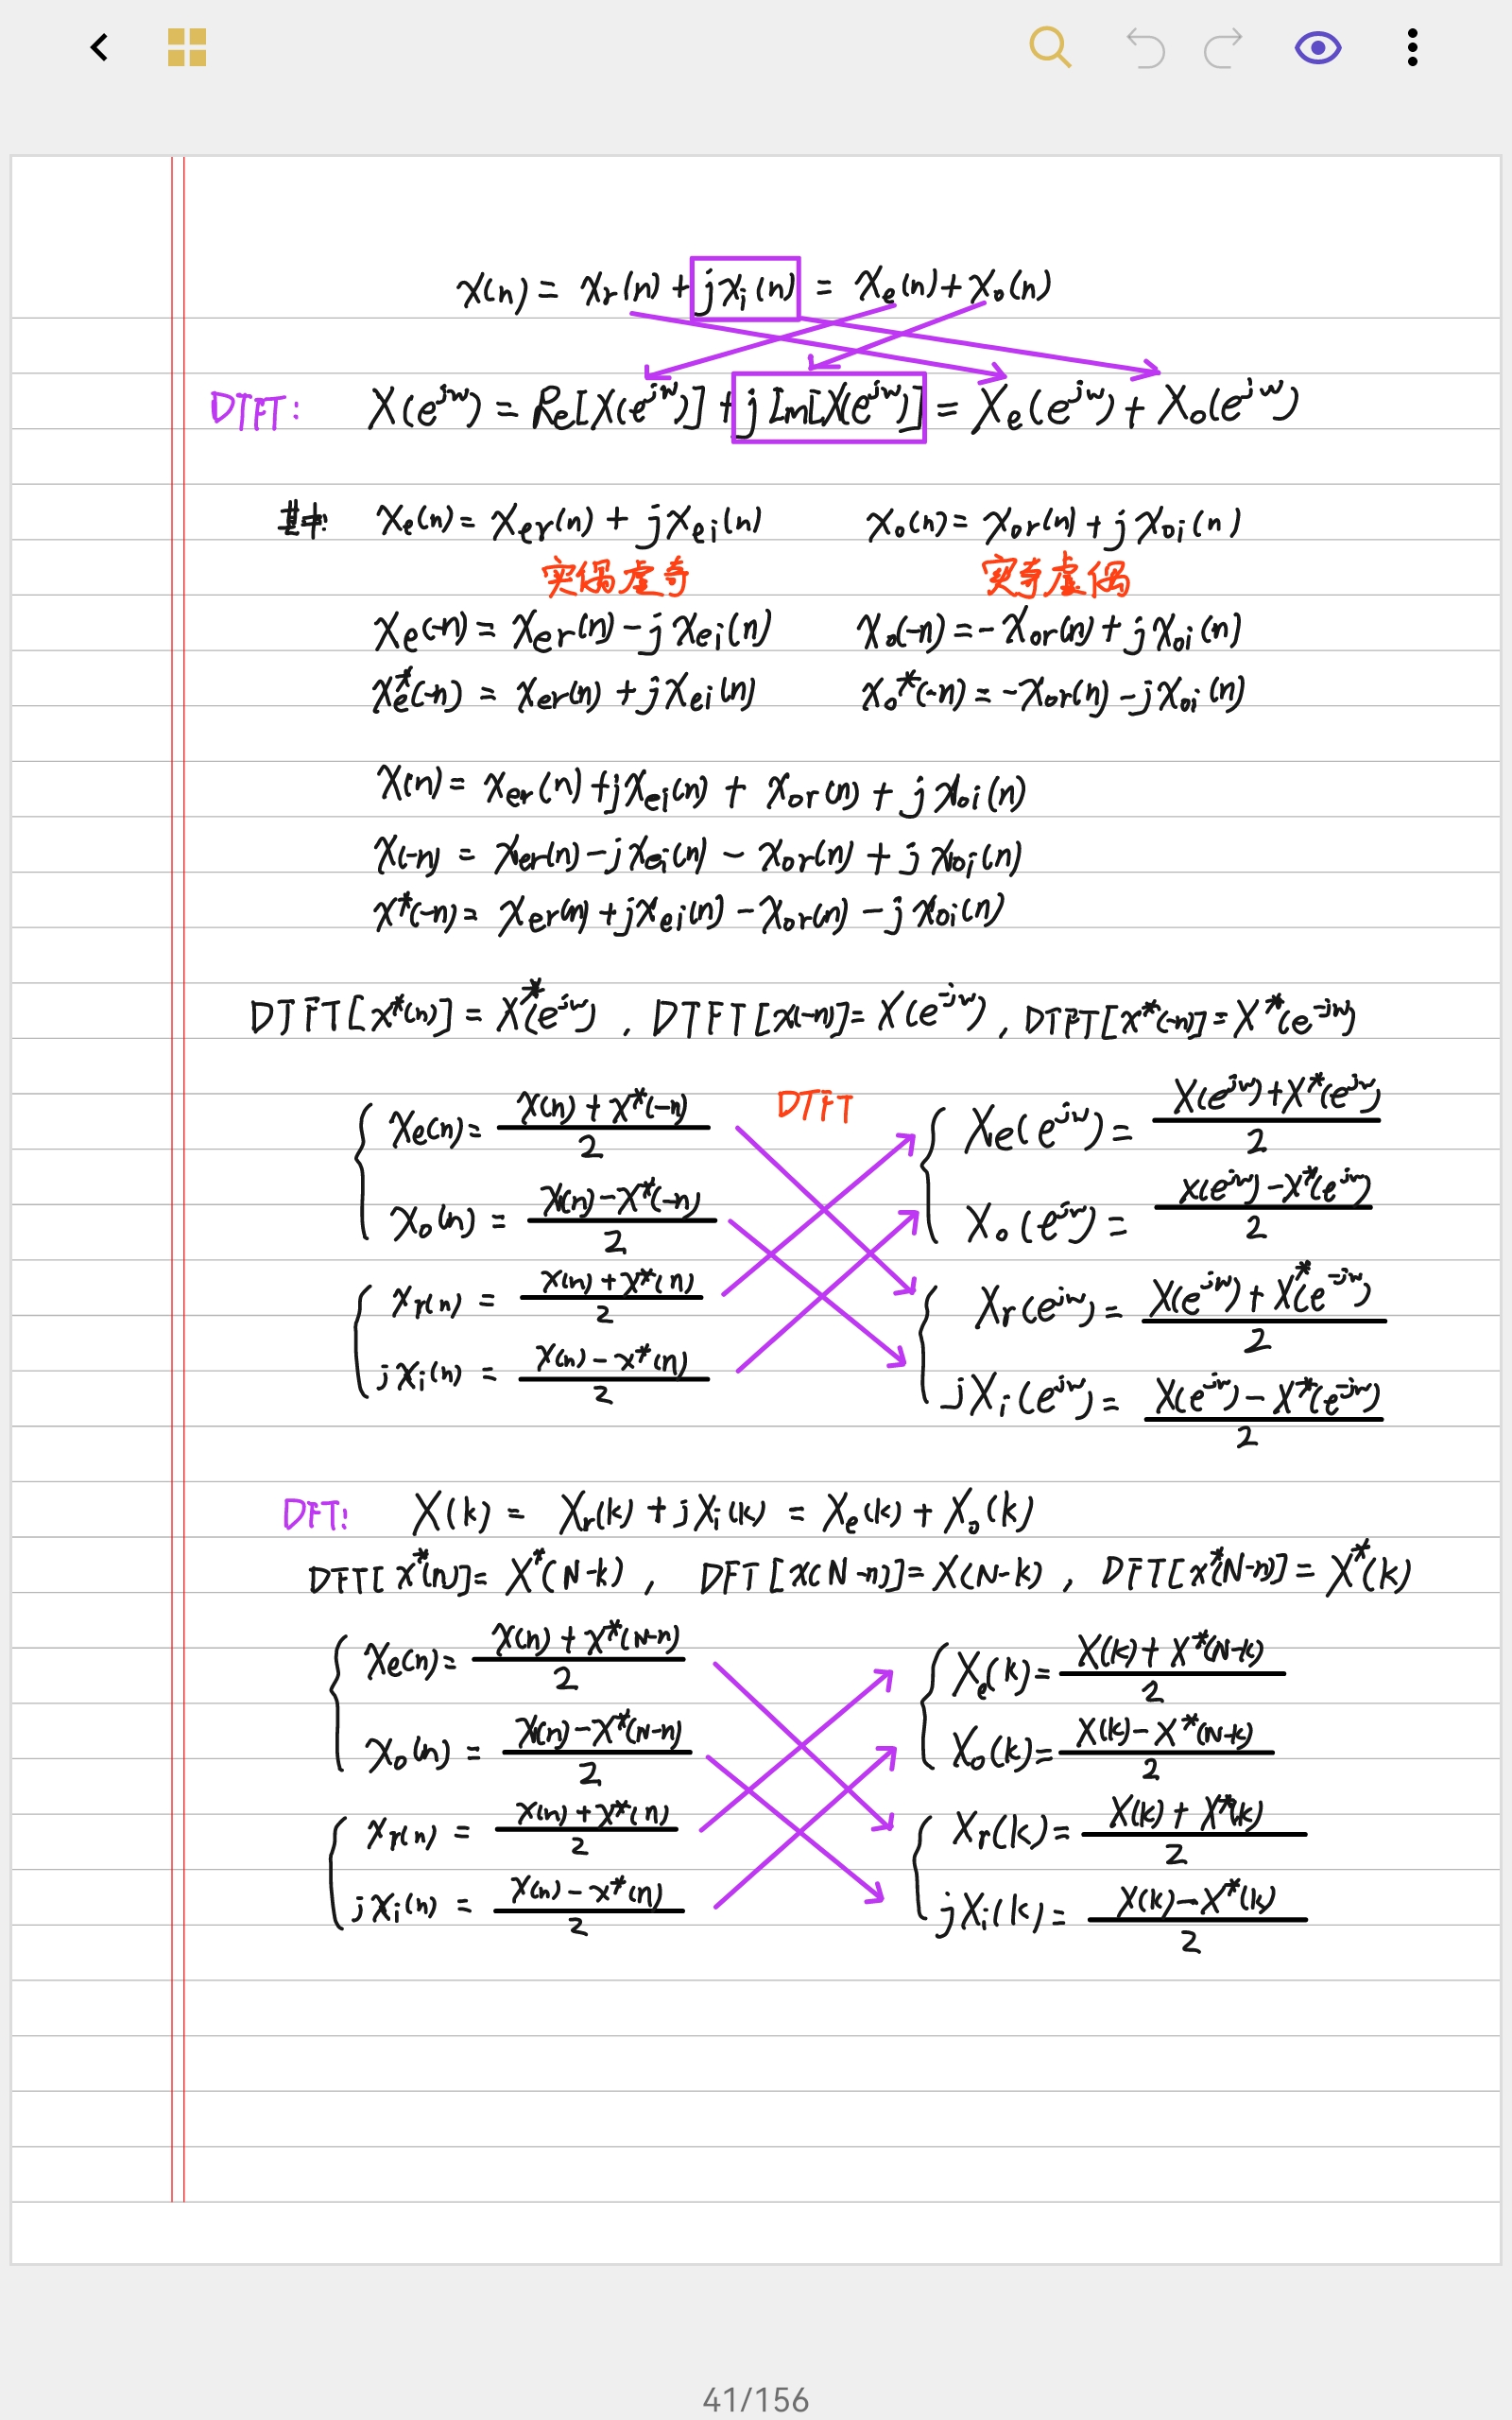 x(n) = xr(n) + jxi(n) = xe(n) + xo(n)
DTFT: X(e^jw) = Re[X(e^jw)] + jIm[X(e^jw)] = Xe(e^jw) + Xo(e^jw)
其中: xe(n) = xer(n) + jxei(n) xo(n) = xor(n) + jxoi(n)
实偶虚奇 实奇虚偶
xe(-n) = xer(n) - jxei(n) xo(-n) = -xor(n) + jxoi(n)
xe*(-n) = xer(n) + jxei(n) xo*(-n) = -xor(n) - jxoi(n)
x(n) = xer(n) + jxei(n) + xor(n) + jxoi(n)
x(-n) = xer(n) - jxei(n) - xor(n) + jxoi(n)
x*(-n) = xer(n) + jxei(n) - xor(n) - jxoi(n)
DTFT[x*(n)] = X*(e^-jw) , DTFT[x(-n)] = X(e^-jw) , DTFT[x*(-n)] = X*(e^-jw)
xe(n) = (x(n) + x*(-n))/2 DTFT Xe(e^jw) = (X(e^jw) + X*(e^jw))/2
xo(n) = (x(n) - x*(-n))/2 Xo(e^jw) = (X(e^jw) - X*(e^jw))/2
xr(n) = (x(n) + x*(n))/2 Xr(e^jw) = (X(e^jw) + X*(e^-jw))/2
jxi(n) = (x(n) - x*(n))/2 jXi(e^jw) = (X(e^jw) - X*(e^-jw))/2
DFT: X(k) = Xr(k) + jXi(k) = Xe(k) + Xo(k)
DFT[x*(n)] = X*(N-k) , DFT[x(N-n)] = X(N-k) , DFT[x*(N-n)] = X*(k)
xe(n) = (x(n) + x*(N-n))/2 Xe(k) = (X(k) + X*(N-k))/2
xo(n) = (x(n) - x*(N-n))/2 Xo(k) = (X(k) - X*(N-k))/2
xr(n) = (x(n) + x*(n))/2 Xr(k) = (X(k) + X*(k))/2
jxi(n) = (x(n) - x*(n))/2 jXi(k) = (X(k) - X*(k))/2
41/156